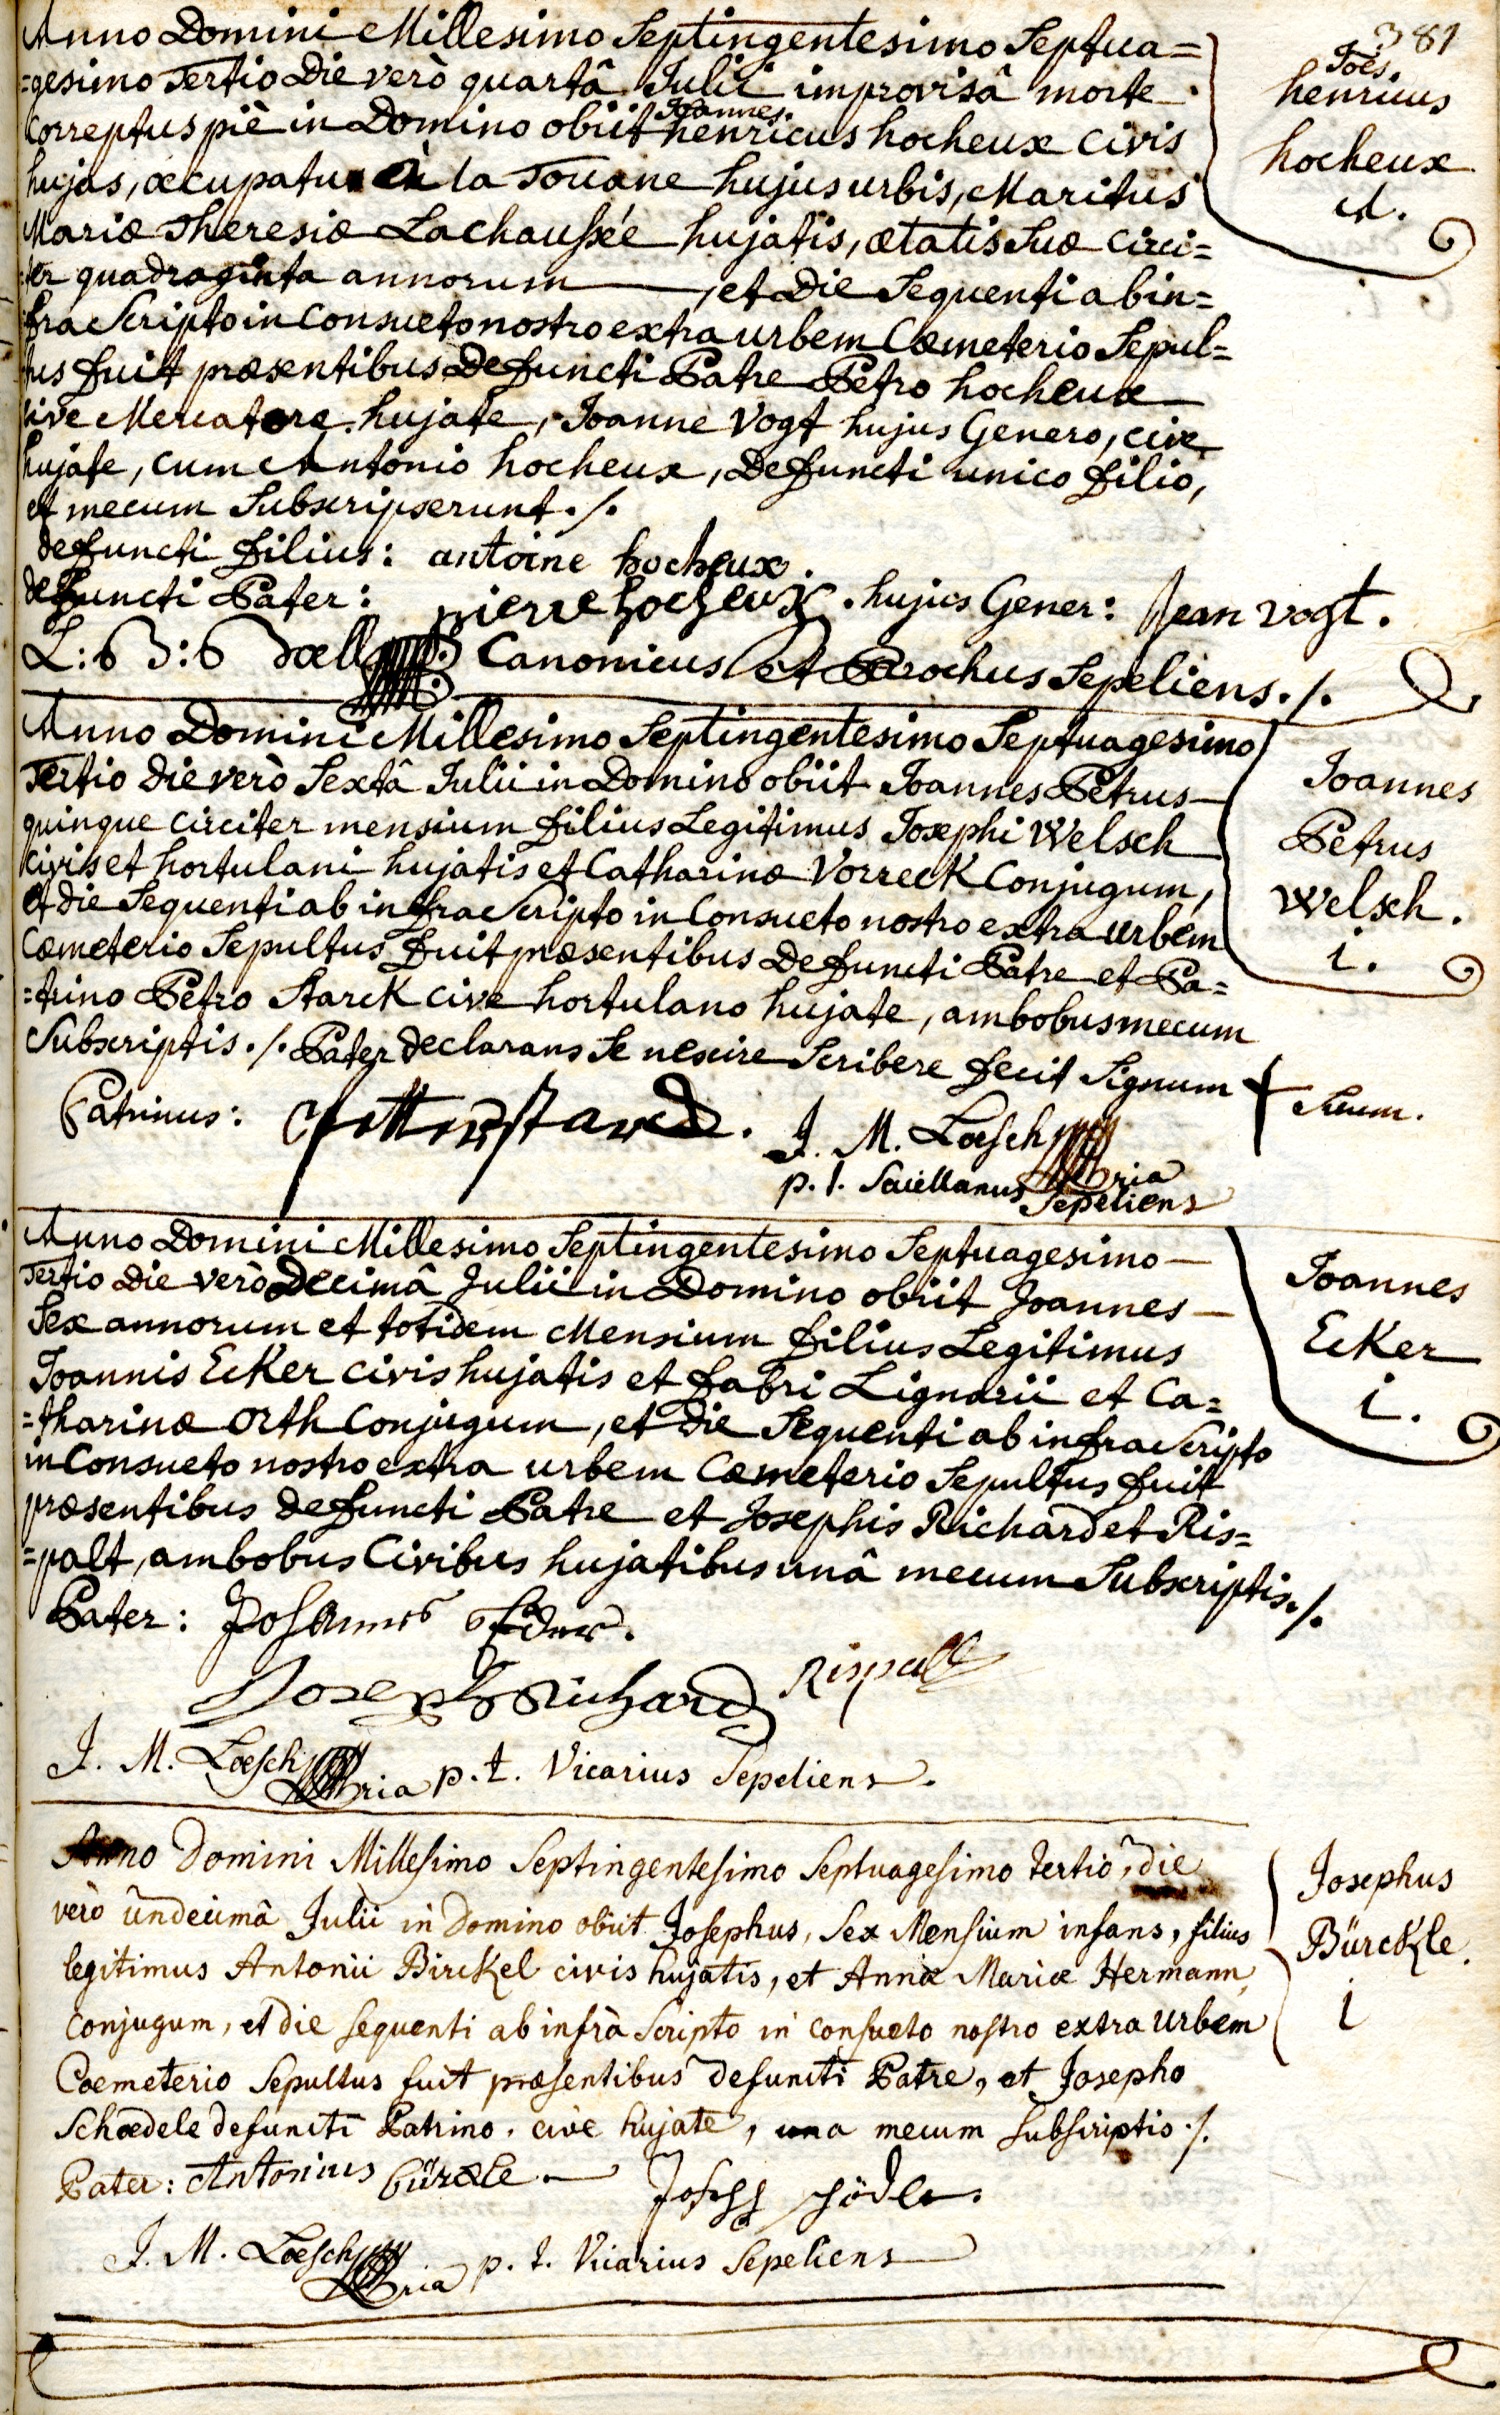 381
Anno Domini Millesimo Septingentesimo Septua=
=gesimo Tertio Die verò quartâ Julii improvisâ morte
Correptus piè in Domino obiit Joannes henricus hocheux Civis
hujas, occupatus à la Douane hujus urbis, Maritus
Mariæ Theresiæ Lachaussée hujatis, ætatis suæ circi=
=ter quadraginta annorum, et Die Sequenti ab in=
fra Scripto in Consueto nostro extra urbem Cœmeterio Sepul=
tus fuit præsentibus Defuncti Patre Petro hocheux
cive Mercatore hujate, Joanne Vogt hujus Genero, cive
hujate, cum Antonio hocheux, Defuncti unico filio,
et mecum Subscripserunt ./.
defuncti filius: antoine hocheux.
defuncti Pater: pierre hocheux. hujus Gener: Jean vogt.
Canonicus et Parochus Sepeliens ./.
Joes.
henricus
hocheux
Anno Domini Millesimo Septingentesimo Septuagesimo
Tertio Die verò Sextâ Julii in Domino obiit Joannes Petrus
quinque circiter mensium filius Legitimus Josephi Welsch
Civis et hortulani hujatis et Catharinæ Vorreck Conjugum,
et die Sequenti ab infra Scripto in Consueto nostro extra urbem
Cœmeterio Sepultus fuit præsentibus Defuncti Patre et Pa=
=trino Petro Starck cive hortulano hujate, ambobus mecum
Subscriptis ./. Pater declarans se nescire Scribere fecit Signum + Suum.
Patrinus:
J. M. Loesch
p. t. Sacellanus
Sepeliens
Joannes
Petrus
Welsch.
i.
Anno Domini Millesimo Septingentesimo Septuagesimo
Tertio Die verò Decimâ Julii in Domino obiit Joannes
Sex annorum et totidem Mensium filius Legitimus
Joannis Ecker civis hujatis et fabri Lignarii et Ca=
=tharinæ Orth Conjugum, et die Sequenti ab infra Scripto
in Consueto nostro extra urbem Cœmeterio Sepultus fuit
præsentibus defuncti Patre et Josephis Richard et Ris=
=palt, ambobus Civibus hujatibus unâ mecum Subscriptis ./.
Pater: Johannes
Joseph Richard Rispall
J. M. Loesch p. t. Vicarius Sepeliens.
Joannes
Ecker
i.
Anno Domini Millesimo Septingentesimo Septuagesimo tertio, die
verò undecimâ Julii in Domino obiit Josephus, sex Mensium infans, filius
legitimus Antonii Birckel civis hujatis, et Annæ Mariæ Hermann,
Conjugum, et die sequenti ab infrà Scripto in consueto nostro extra Urbem
Coemeterio Sepultus fuit præsentibus defuncti Patre, et Josepho
Schœdele defuncti Patrino, cive hujate, una mecum subscriptio ./.
Pater: Antonius bürcle. Joseph schödle.
J. M. Loesch p. t. Vicarius Sepeliens
Josephus
Bürckle.
i